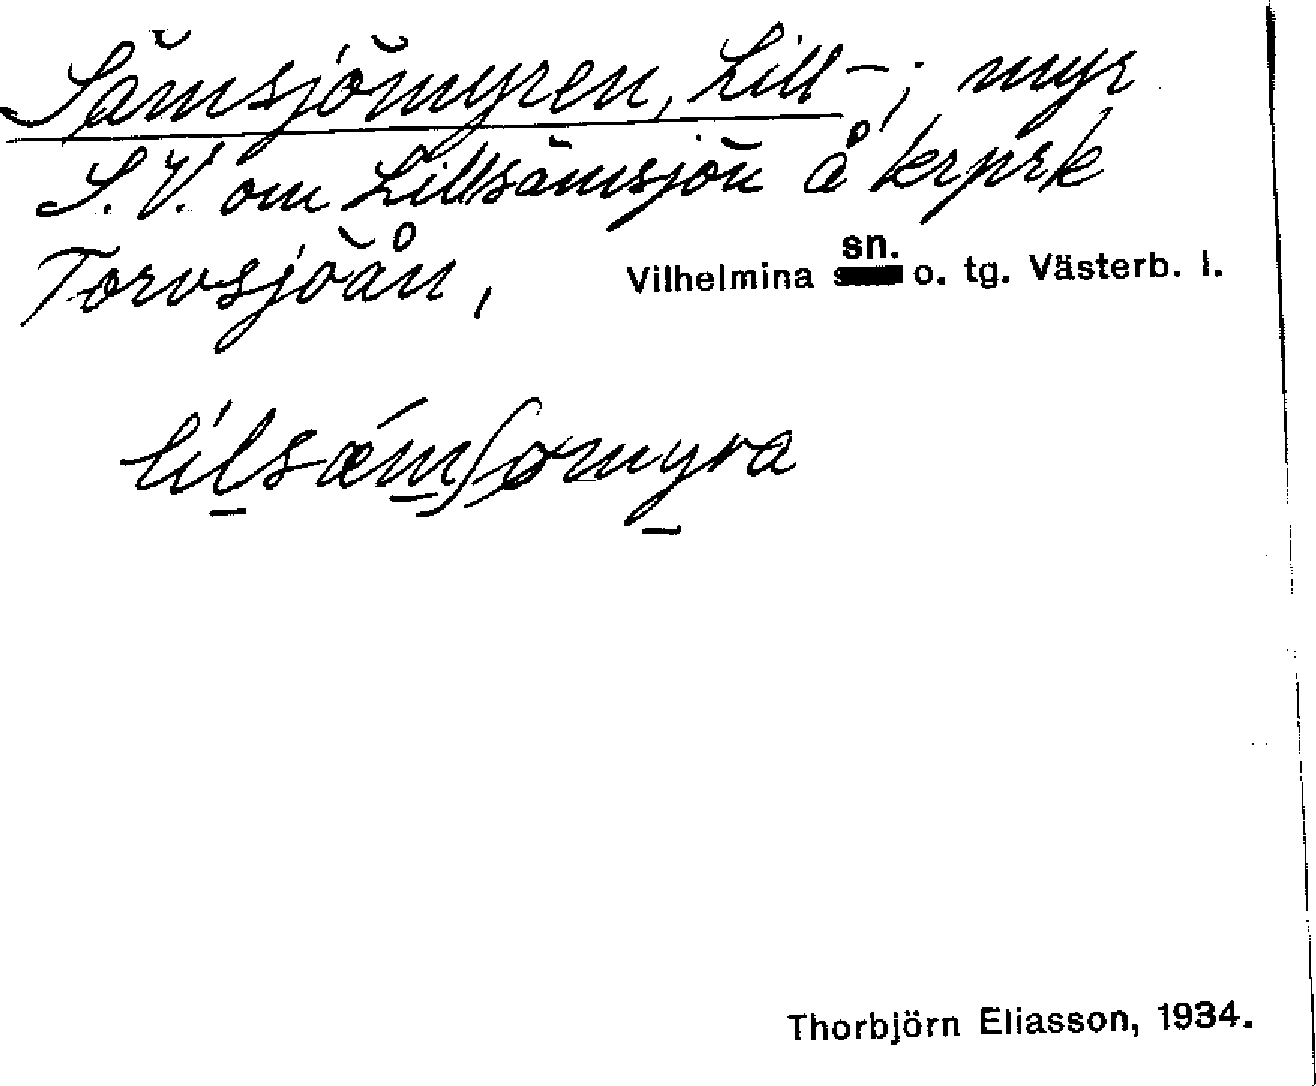 Sämsjömyren, Lill-; myr
S.V. om Lillsämsjön å krprk
Torvsjöån, Vilhelmina sn. o. tg. Västerb. l.
Thorbjörn Eliasson, 1934.